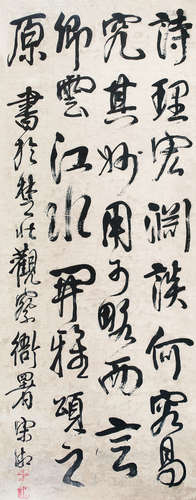 詩理宏淵談何容易
究其妙用可略而言
卿雲江水開雅頌之
原 書於楚北觀察衙署宋湘